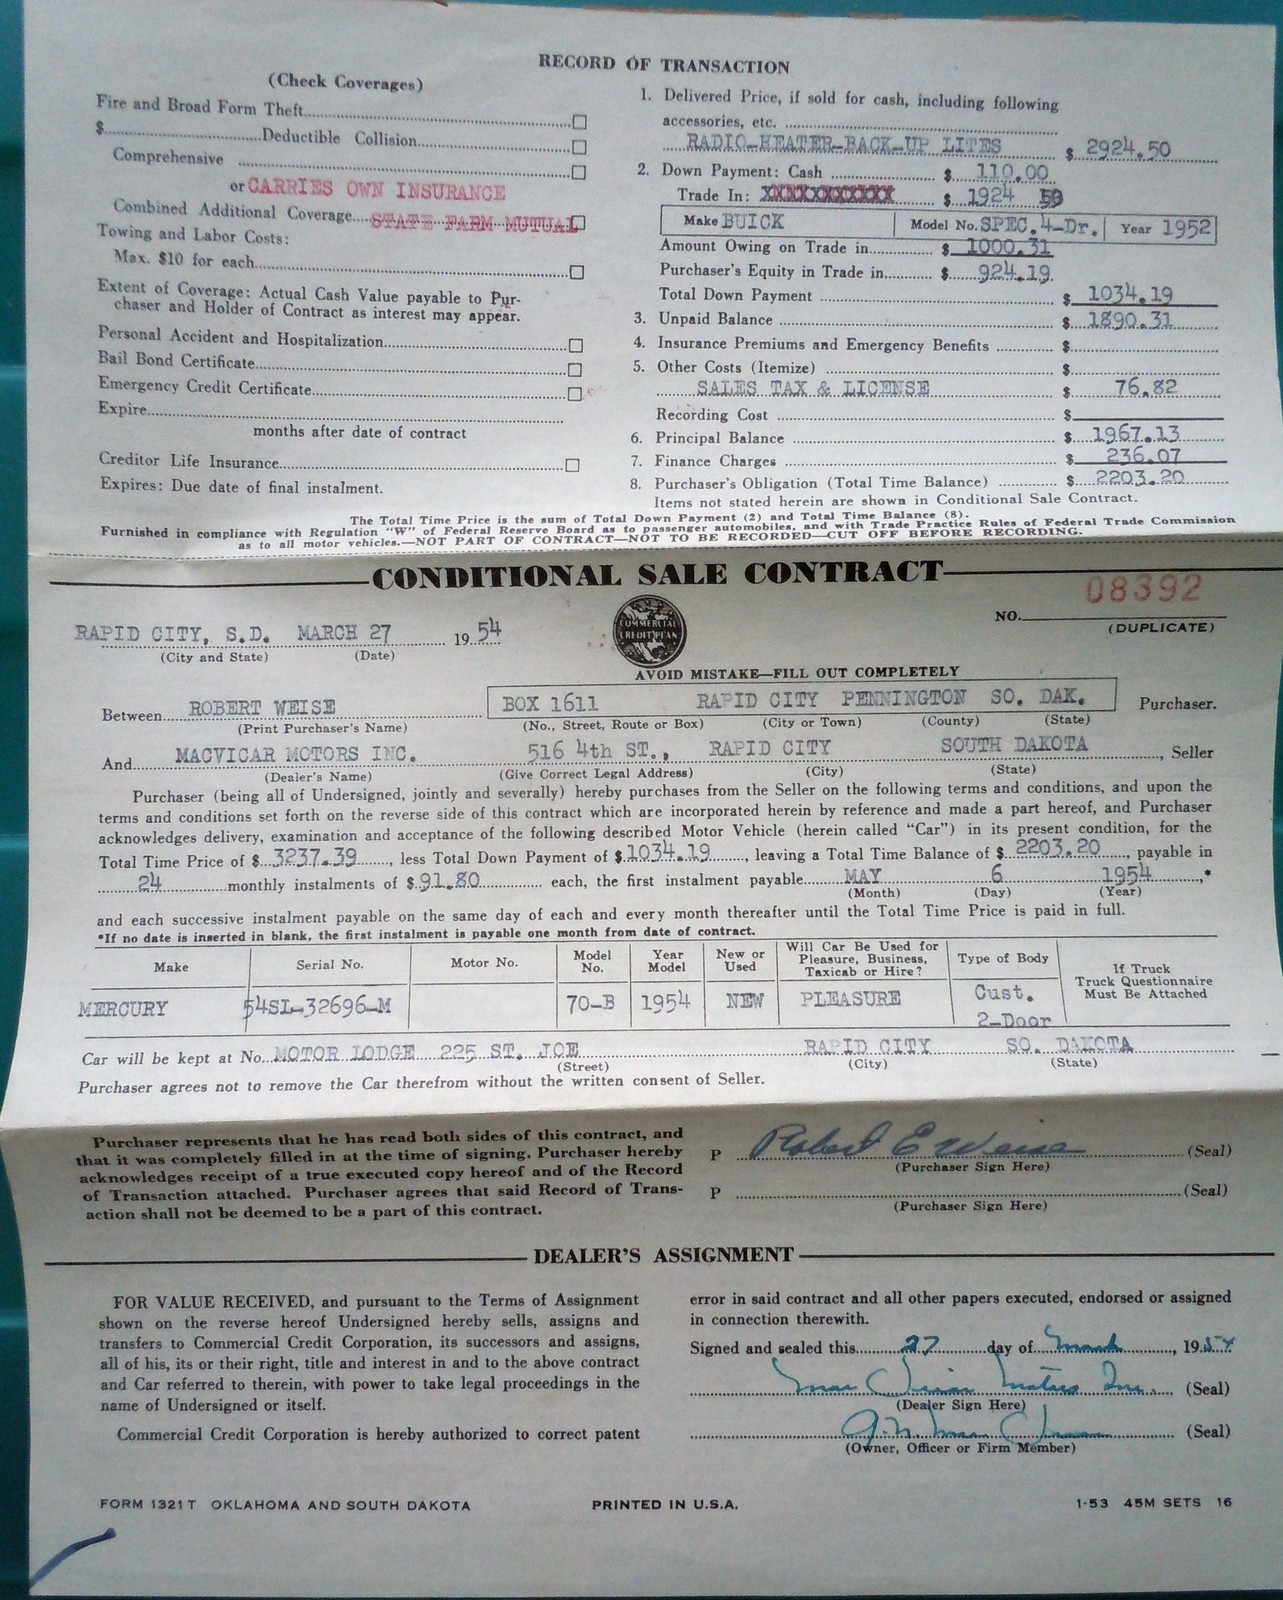 RECORD OF TRANSACTION
(Check Coverages)
Fire and Broad Form Theft
$ Deductible Collision
Comprehensive
or CARRIES OWN INSURANCE
Combined Additional Coverage STATE FARM MUTUAL
Towing and Labor Costs:
Max. $10 for each
Extent of Coverage: Actual Cash Value payable to Pur-
chaser and Holder of Contract as interest may appear.
Personal Accident and Hospitalization
Bail Bond Certificate
Emergency Credit Certificate
Expire
months after date of contract
Creditor Life Insurance
Expires: Due date of final instalment.
1. Delivered Price, if sold for cash, including following
accessories, etc.
RADIO-HEATER-BACK-UP LITES $ 2924.50
2. Down Payment: Cash $ 110.00
Trade In: XXXXXXXXXXX $ 1924 50
Make BUICK Model No. SPEC. 4-Dr. Year 1952
Amount Owing on Trade in $ 1000.31
Purchaser's Equity in Trade in $ 924.19
Total Down Payment $ 1034.19
3. Unpaid Balance $ 1890.31
4. Insurance Premiums and Emergency Benefits $
5. Other Costs (Itemize) $
SALES TAX & LICENSE $ 76.82
Recording Cost $
6. Principal Balance $ 1967.13
7. Finance Charges $ 236.07
8. Purchaser's Obligation (Total Time Balance) $ 2203.20
Items not stated herein are shown in Conditional Sale Contract.
The Total Time Price is the sum of Total Down Payment (2) and Total Time Balance (8).
Furnished in compliance with Regulation "W" of Federal Reserve Board as to passenger automobiles, and with Trade Practice Rules of Federal Trade Commission
as to all motor vehicles.—NOT PART OF CONTRACT—NOT TO BE RECORDED—CUT OFF BEFORE RECORDING.
CONDITIONAL SALE CONTRACT
08392
NO.
(DUPLICATE)
RAPID CITY, S.D. MARCH 27 1954
(City and State) (Date)
COMMERCIAL
CREDIT PLAN
AVOID MISTAKE—FILL OUT COMPLETELY
Between ROBERT WEISE BOX 1611 RAPID CITY PENNINGTON SO. DAK. Purchaser.
(Print Purchaser's Name) (No., Street, Route or Box) (City or Town) (County) (State)
And MACVICAR MOTORS INC. 516 4th ST., RAPID CITY SOUTH DAKOTA, Seller
(Dealer's Name) (Give Correct Legal Address) (City) (State)
Purchaser (being all of Undersigned, jointly and severally) hereby purchases from the Seller on the following terms and conditions, and upon the
terms and conditions set forth on the reverse side of this contract which are incorporated herein by reference and made a part hereof, and Purchaser
acknowledges delivery, examination and acceptance of the following described Motor Vehicle (herein called "Car") in its present condition, for the
Total Time Price of $ 3237.39, less Total Down Payment of $ 1034.19, leaving a Total Time Balance of $ 2203.20, payable in
24 monthly instalments of $ 91.80 each, the first instalment payable MAY 6 1954,*
(Month) (Day) (Year)
and each successive instalment payable on the same day of each and every month thereafter until the Total Time Price is paid in full.
*If no date is inserted in blank, the first instalment is payable one month from date of contract.
Make Serial No. Motor No. Model No. Year Model New or Used Will Car Be Used for Pleasure, Business, Taxicab or Hire? Type of Body If Truck Truck Questionnaire Must Be Attached
MERCURY 54SL-32696-M 70-B 1954 NEW PLEASURE Cust. 2-Door
Car will be kept at No. MOTOR LODGE 225 ST. JOE RAPID CITY SO. DAKOTA
(Street) (City) (State)
Purchaser agrees not to remove the Car therefrom without the written consent of Seller.
Purchaser represents that he has read both sides of this contract, and
that it was completely filled in at the time of signing. Purchaser hereby
acknowledges receipt of a true executed copy hereof and of the Record
of Transaction attached. Purchaser agrees that said Record of Trans-
action shall not be deemed to be a part of this contract.
P Robert E Weise (Seal)
(Purchaser Sign Here)
P (Seal)
(Purchaser Sign Here)
DEALER'S ASSIGNMENT
FOR VALUE RECEIVED, and pursuant to the Terms of Assignment
shown on the reverse hereof Undersigned hereby sells, assigns and
transfers to Commercial Credit Corporation, its successors and assigns,
all of his, its or their right, title and interest in and to the above contract
and Car referred to therein, with power to take legal proceedings in the
name of Undersigned or itself.
Commercial Credit Corporation is hereby authorized to correct patent
error in said contract and all other papers executed, endorsed or assigned
in connection therewith.
Signed and sealed this 27 day of March, 1954
MacVicar Motors Inc. (Seal)
(Dealer Sign Here)
(Seal)
(Owner, Officer or Firm Member)
FORM 1321 T OKLAHOMA AND SOUTH DAKOTA PRINTED IN U.S.A. 1-53 45M SETS 16